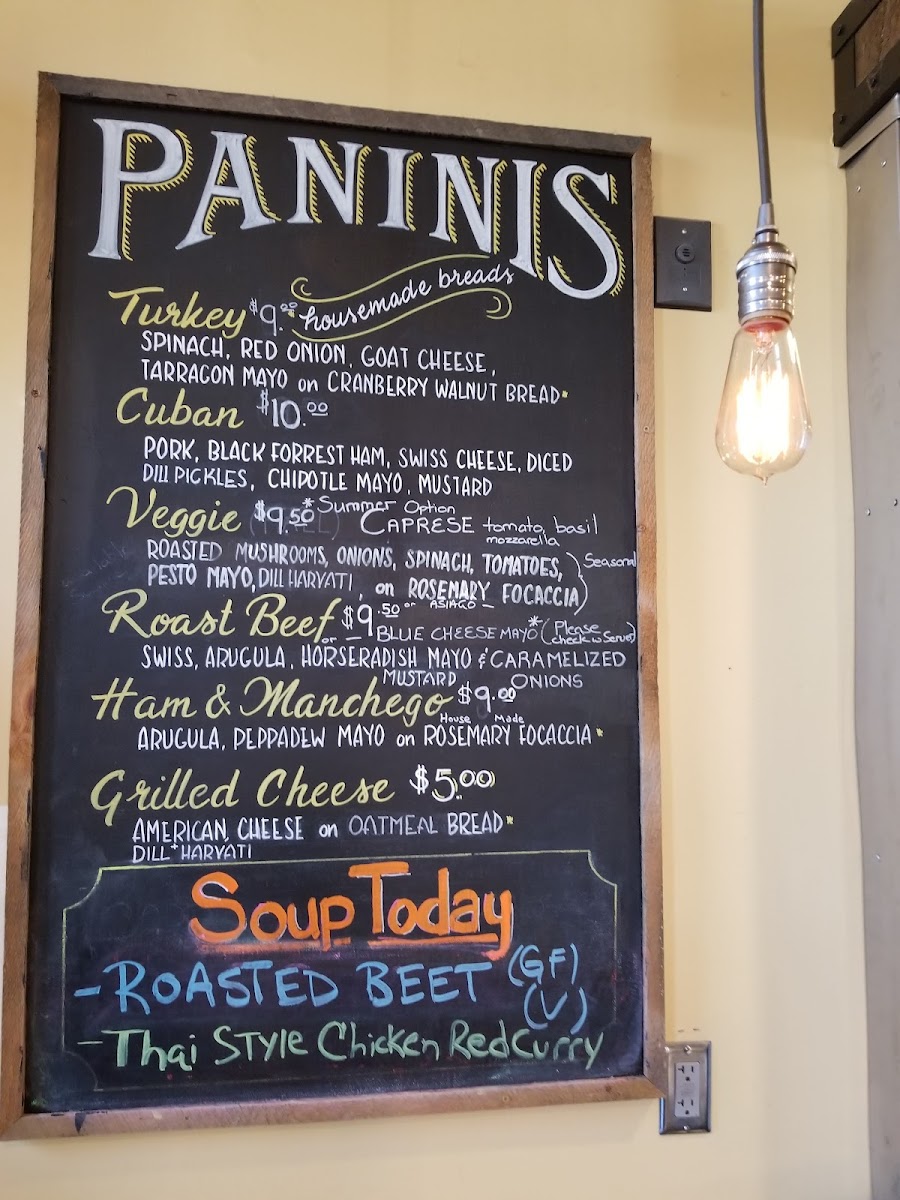 PANINIS
housemade breads
Turkey $9.00
SPINACH, RED ONION, GOAT CHEESE,
TARRAGON MAYO on CRANBERRY WALNUT BREAD*
Cuban $10.00
PORK, BLACK FORREST HAM, SWISS CHEESE, DICED
DILL PICKLES, CHIPOTLE MAYO, MUSTARD
Veggie $9.50 *Summer Option
CAPRESE tomato, basil
mozzarella
ROASTED MUSHROOMS, ONIONS, SPINACH, TOMATOES, Seasonal
PESTO MAYO, DILL HARVATI, on ROSEMARY FOCACCIA
or ASIAGO
Roast Beef $9.50
or - BLUE CHEESE MAYO* (Please
check w Server)
SWISS, ARUGULA, HORSERADISH MAYO & CARAMELIZED
MUSTARD ONIONS
Ham & Manchego $9.00
House Made
ARUGULA, PEPPADEW MAYO on ROSEMARY FOCACCIA*
Grilled Cheese $5.00
AMERICAN CHEESE on OATMEAL BREAD*
DILL + HARVATI
Soup Today
- ROASTED BEET (GF)
(V)
- Thai STYLE Chicken Red Curry